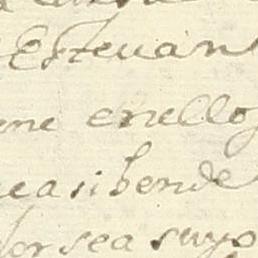 Esteuan
me enello
ea si bende
ser sea suyo